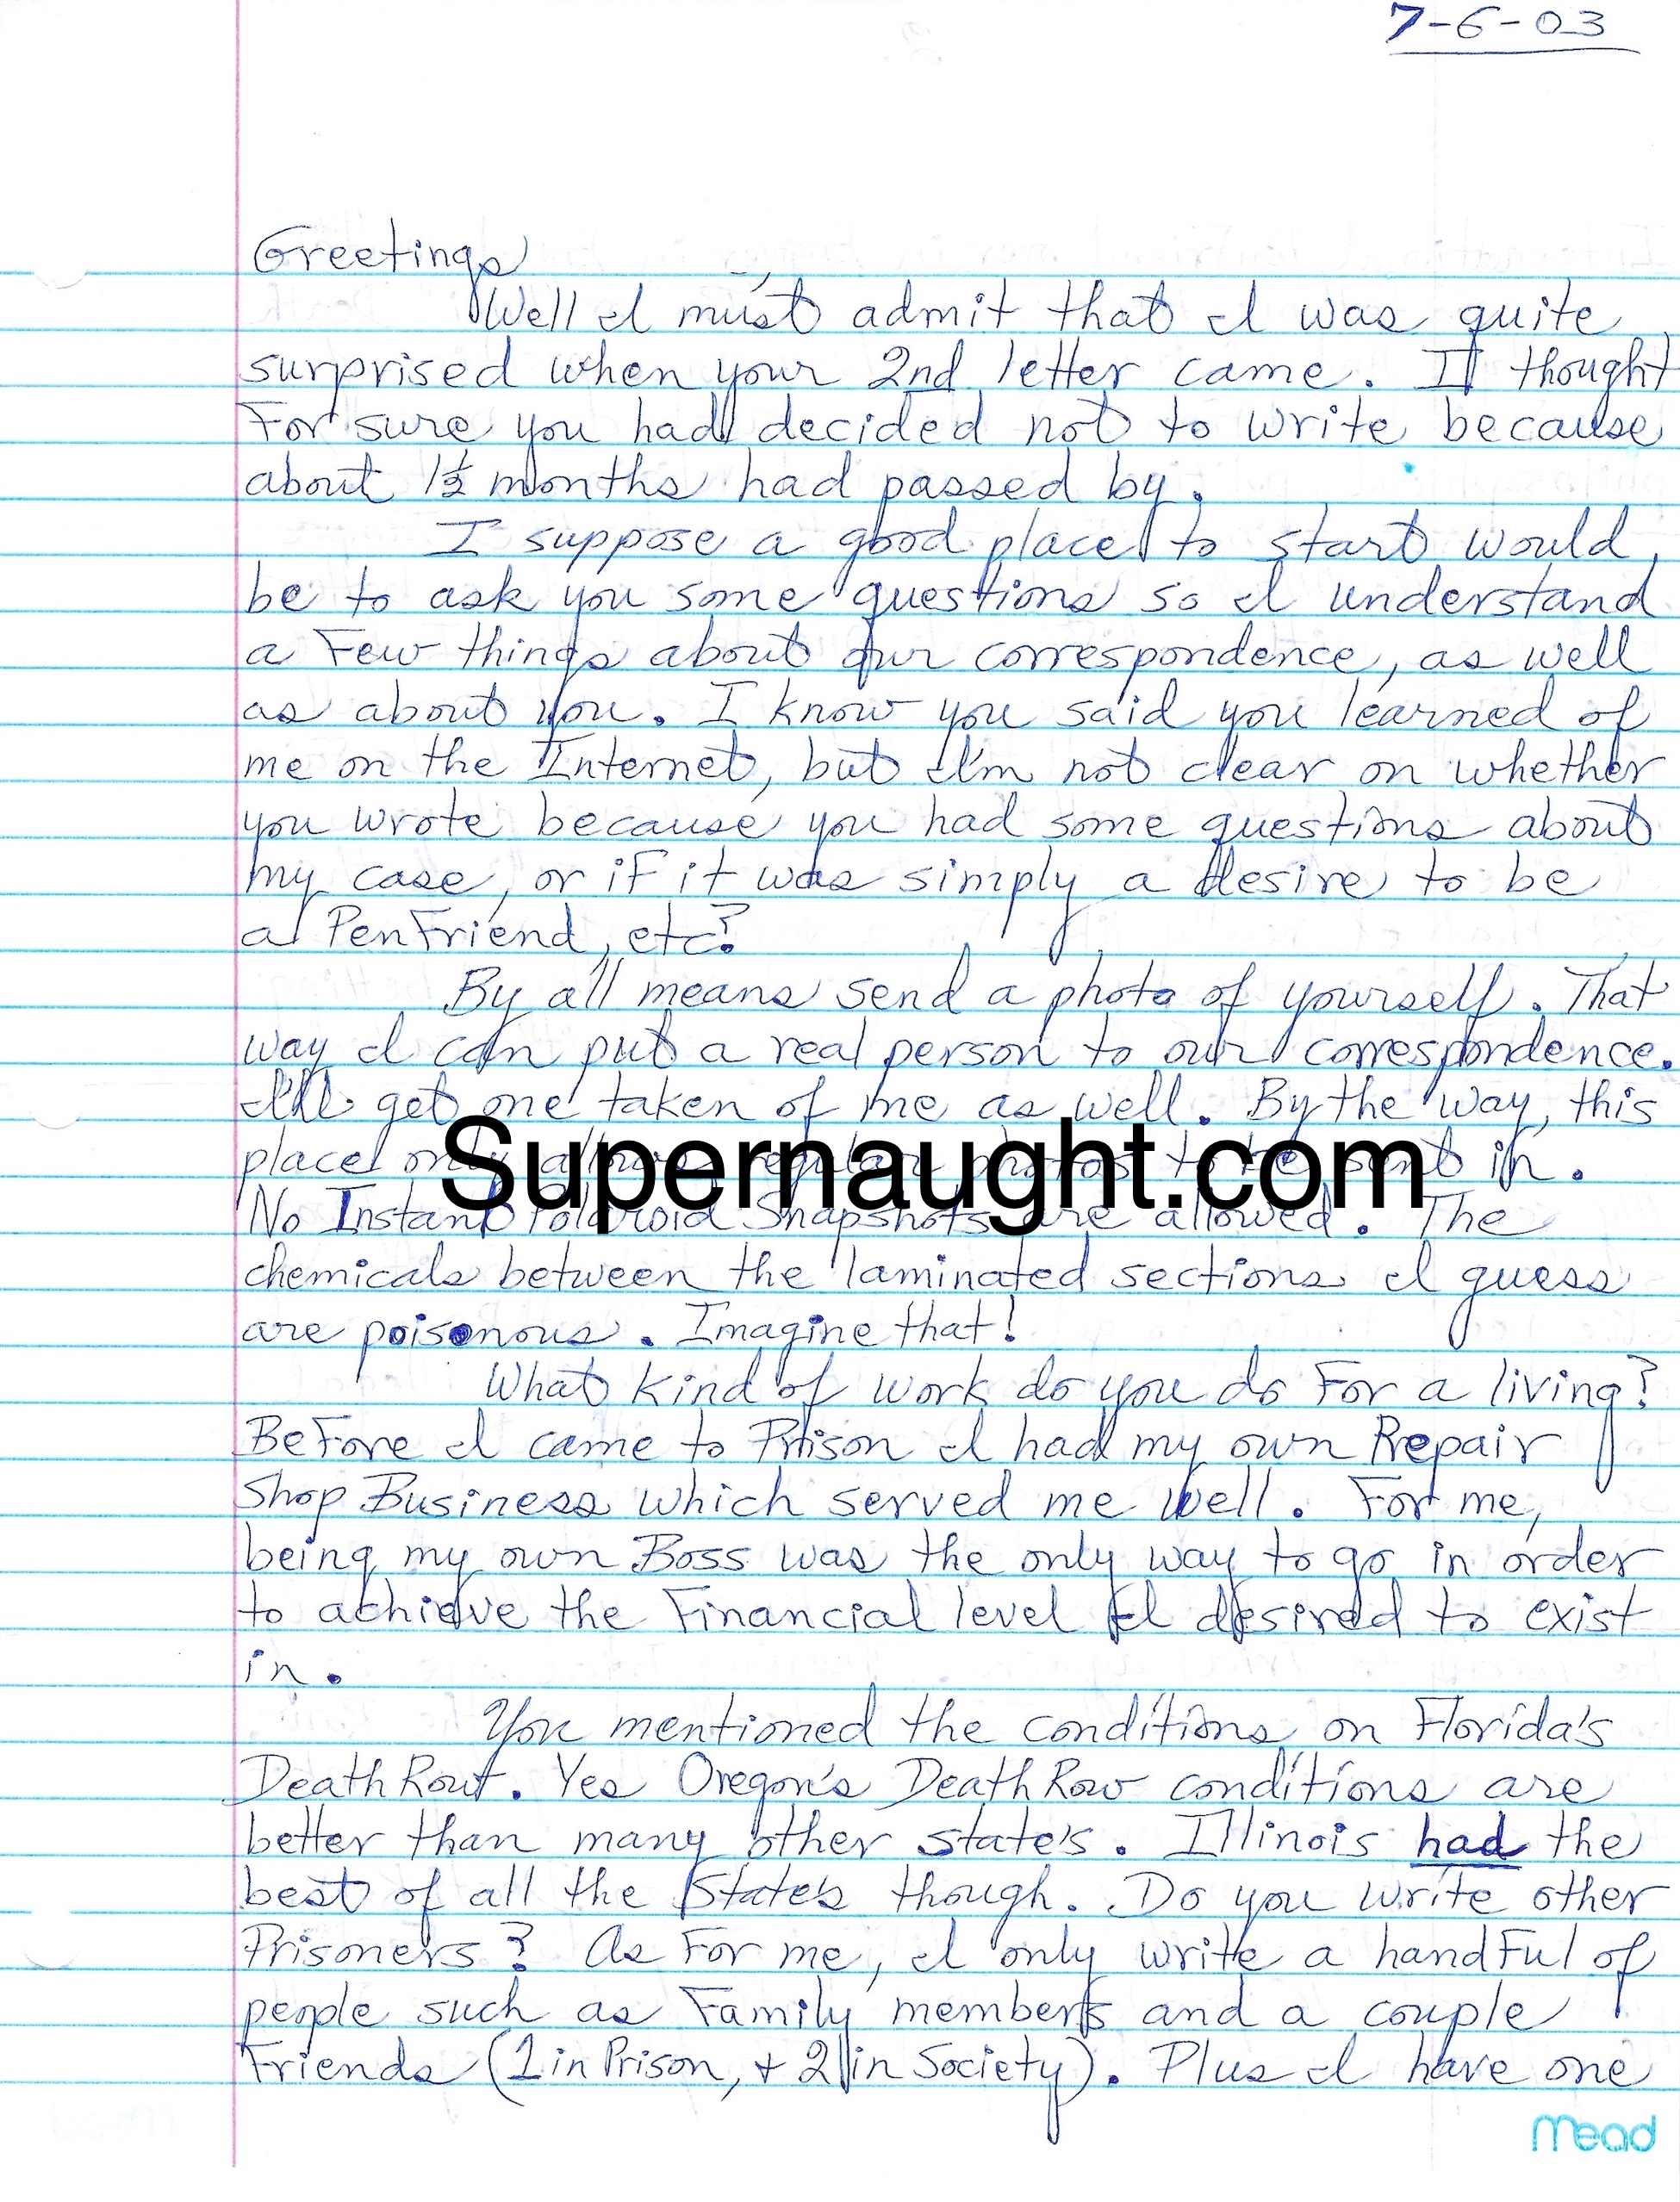 7-6-03
Greetings
Well I must admit that I was quite
surprised when your 2nd letter came. I thought
For sure you had decided not to write because
about 1½ months had passed by.
I suppose a good place to start would
be to ask you some questions so I understand
a Few things about our correspondence, as well
as about you. I know you said you learned of
me on the Internet, but I'm not clear on whether
you wrote because you had some questions about
my case, or if it was simply a desire to be
a PenFriend, etc?
By all means send a photo of yourself. That
way I can put a real person to our correspondence.
I'll get one taken of me as well. By the way, this
place only allows regular photos to be sent in.
Supernaught.com
No Instant Polaroid Snapshots are allowed. The
chemicals between the laminated sections I guess
are poisonous. Imagine that!
What kind of work do you do For a living?
BeFore I came to Prison I had my own Repair
Shop Business which served me well. For me,
being my own Boss was the only way to go in order
to achieve the Financial level I desired to exist
in.
You mentioned the conditions on Florida's
Death Row. Yes Oregon's Death Row conditions are
better than many other state's. Illinois had the
best of all the State's though. Do you write other
Prisoners? As For me, I only write a handFul of
people such as Family members and a couple
Friends (1 in Prison, + 2 in Society). Plus I have one
Mead